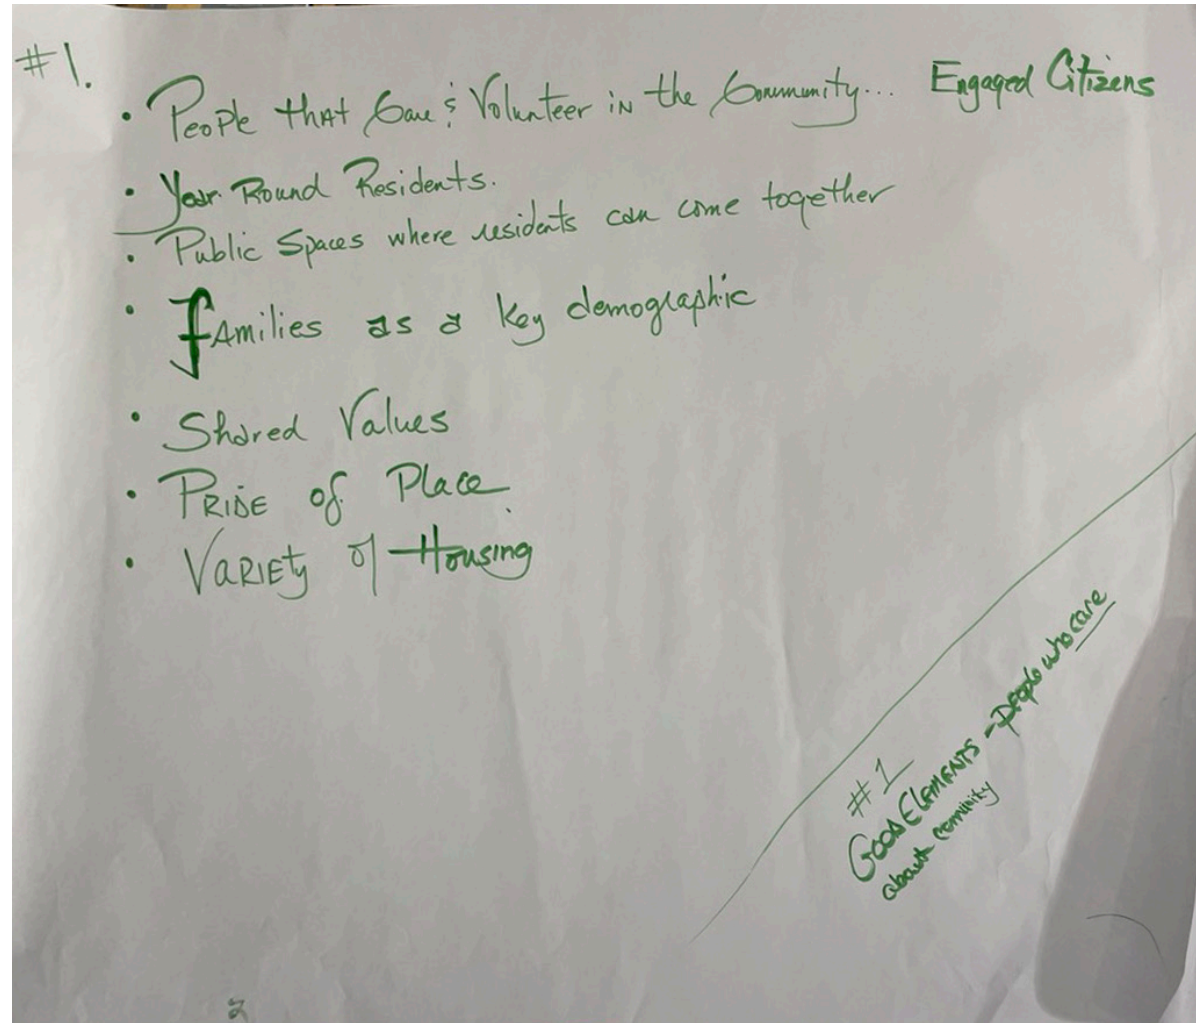 #1.
• People that Care & Volunteer in the Community... Engaged Citizens
• Year Round Residents.
• Public Spaces where residents can come together
• families as a key demographic
• Shared Values
• Pride of Place
• Variety of Housing
#1
Good Elements - people who care
about comunity
2